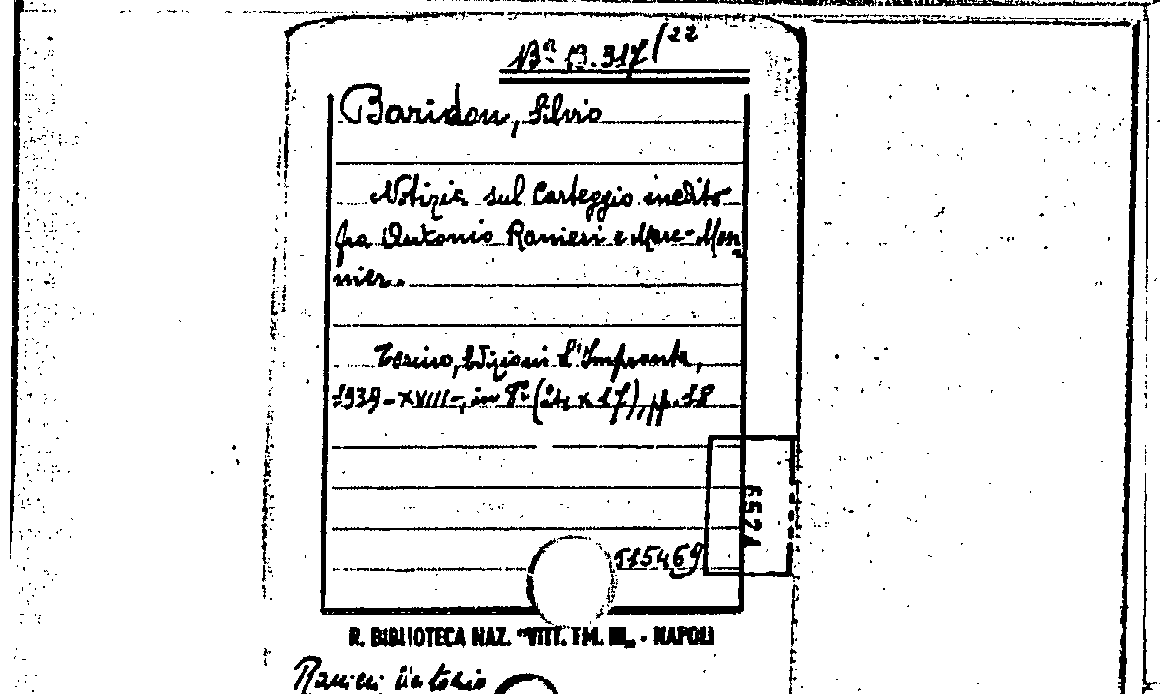 Bª B. 317/22
Baridon, Silvio
Notizia sul Carteggio inedito
fra Antonio Ranieri e Marc-Mon
nier.
Torino, Edizioni l'Impronta,
1939-XVIII-, in 8º ( x 17), pp. 18
6521
515469
R. BIBLIOTECA NAZ. "VITT. EM. III„ - NAPOLI
Ranieri Antonio